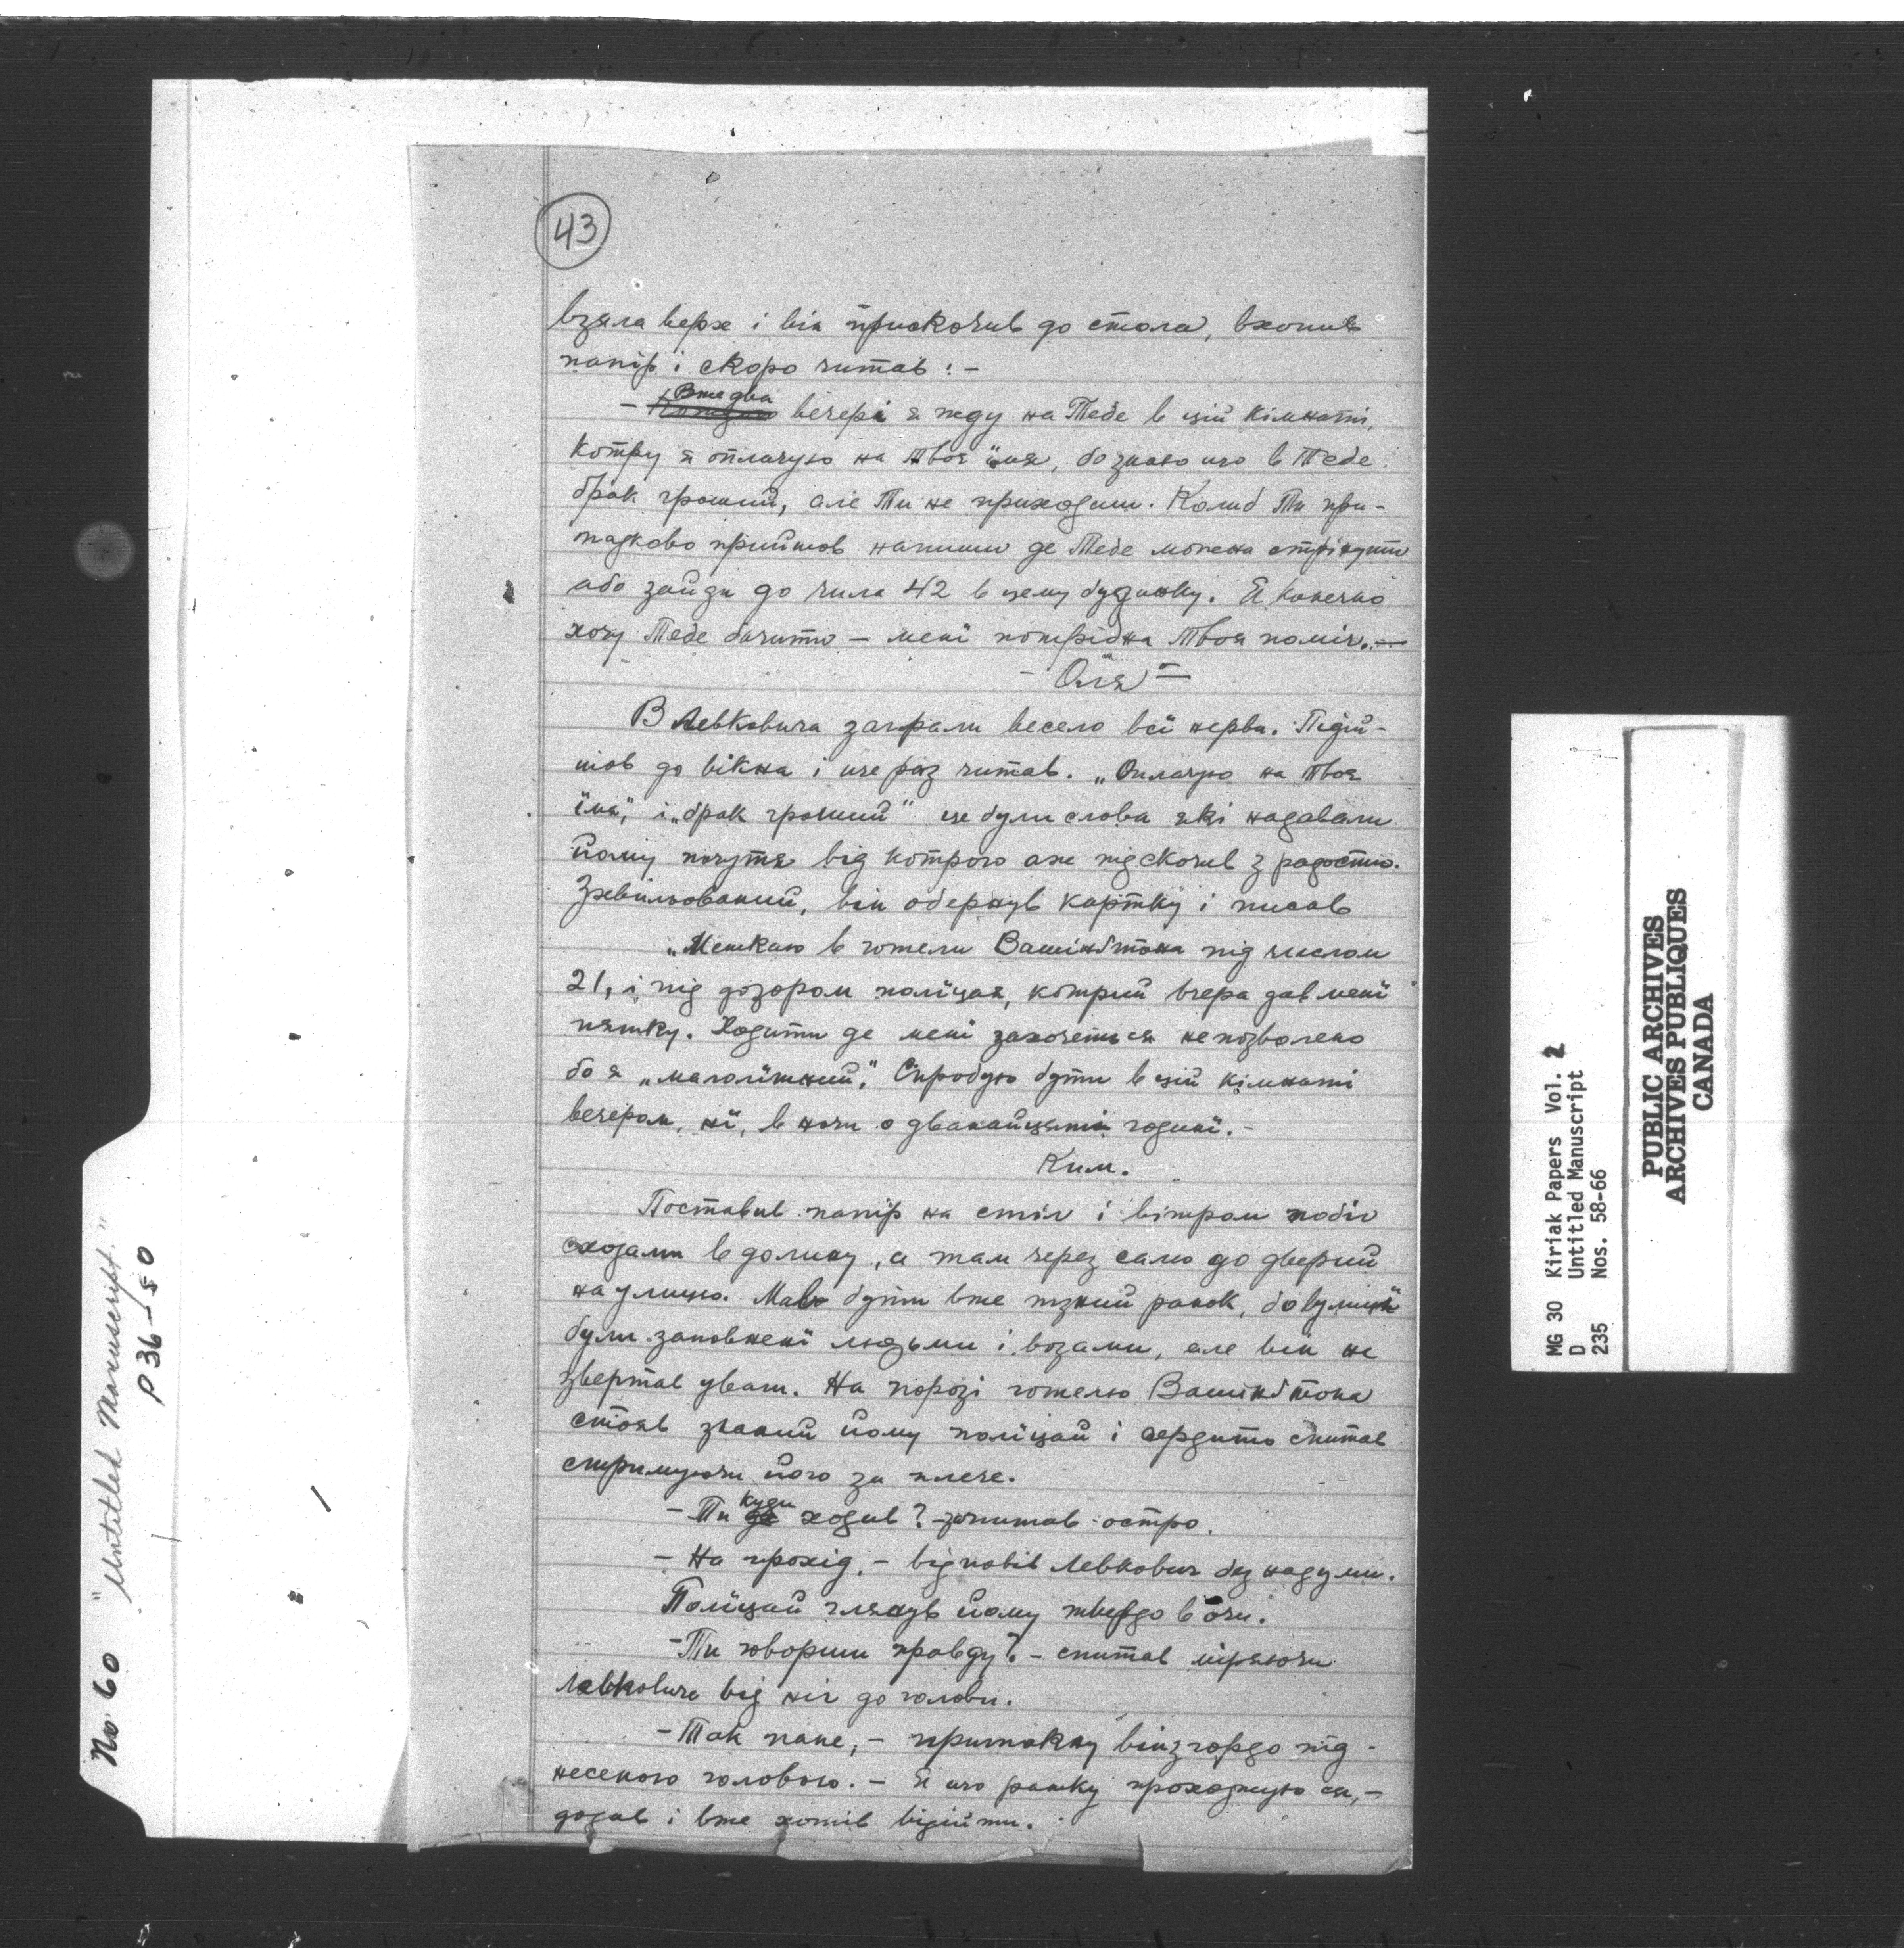 43
взяла верх і він прискочив до стола, вхопив
папір і скоро читав: -
- Вже два вечері я жду на Тебе в цій кімнаті,
котру я оплачую на твоя імя, бо знаю що в Тебе
брак гроший, але Ти не приходиш. Колиб Ти при-
падково прийшов напиши де Тебе можна стрінути
або зайди до числа 42 в цему будинку. Я конечно
хочу Тебе бачити - мені потрібна Твоя поміч. -
- Оля -
В Левковича заграли весело всї нерви. Підій-
шов до вікна і ще раз читав. „Оплачую на твоя
їмя," і „брак грошей" це були слова які надавали
йому почутя від котрого аж підскочив з радости.
Зхвильований, він обернув картку і писав
„Мешкаю в готели Вашінґтона під числом
21, і під дозором поліцая, котрий вчера дав мені
пятку. Ходити де мені захочеться непозволено
бо я „малолїтний." Спробую бути в цій кімнаті
вечером, нї, в ночи о дванайцятій годинї. -
Ким.
Поставив папір на стіл і вітром побіг
сходами в долину, а там через салю до дверий
на улицю. Мав бути вже пізний ранок, бо вулицї
були заповнені людьми і возами, але він не
звертав уваги. На порозі готелю Вашінґтона
стояв знаний йому поліцай і сердито спитав
стримуючи його за плече.
- Ти куди ходив? - запитав остро.
- На прохід, - відповів Левкович без надуми.
Поліцай глянув йому твердо в очи.
- Ти говориш правду? - спитав міряючи
Левковича від ніг до голови.
- Так пане, - притакну він з гордо під-
несеною головою. - Я що ранку проходжую ся, -
додав і вже хотів відійти.
No. 60 "Untitled Manuscript."
P 36-50
MG 30 Kiriak Papers Vol. 2
D Untitled Manuscript
235 Nos. 58-66
PUBLIC ARCHIVES
ARCHIVES PUBLIQUES
CANADA